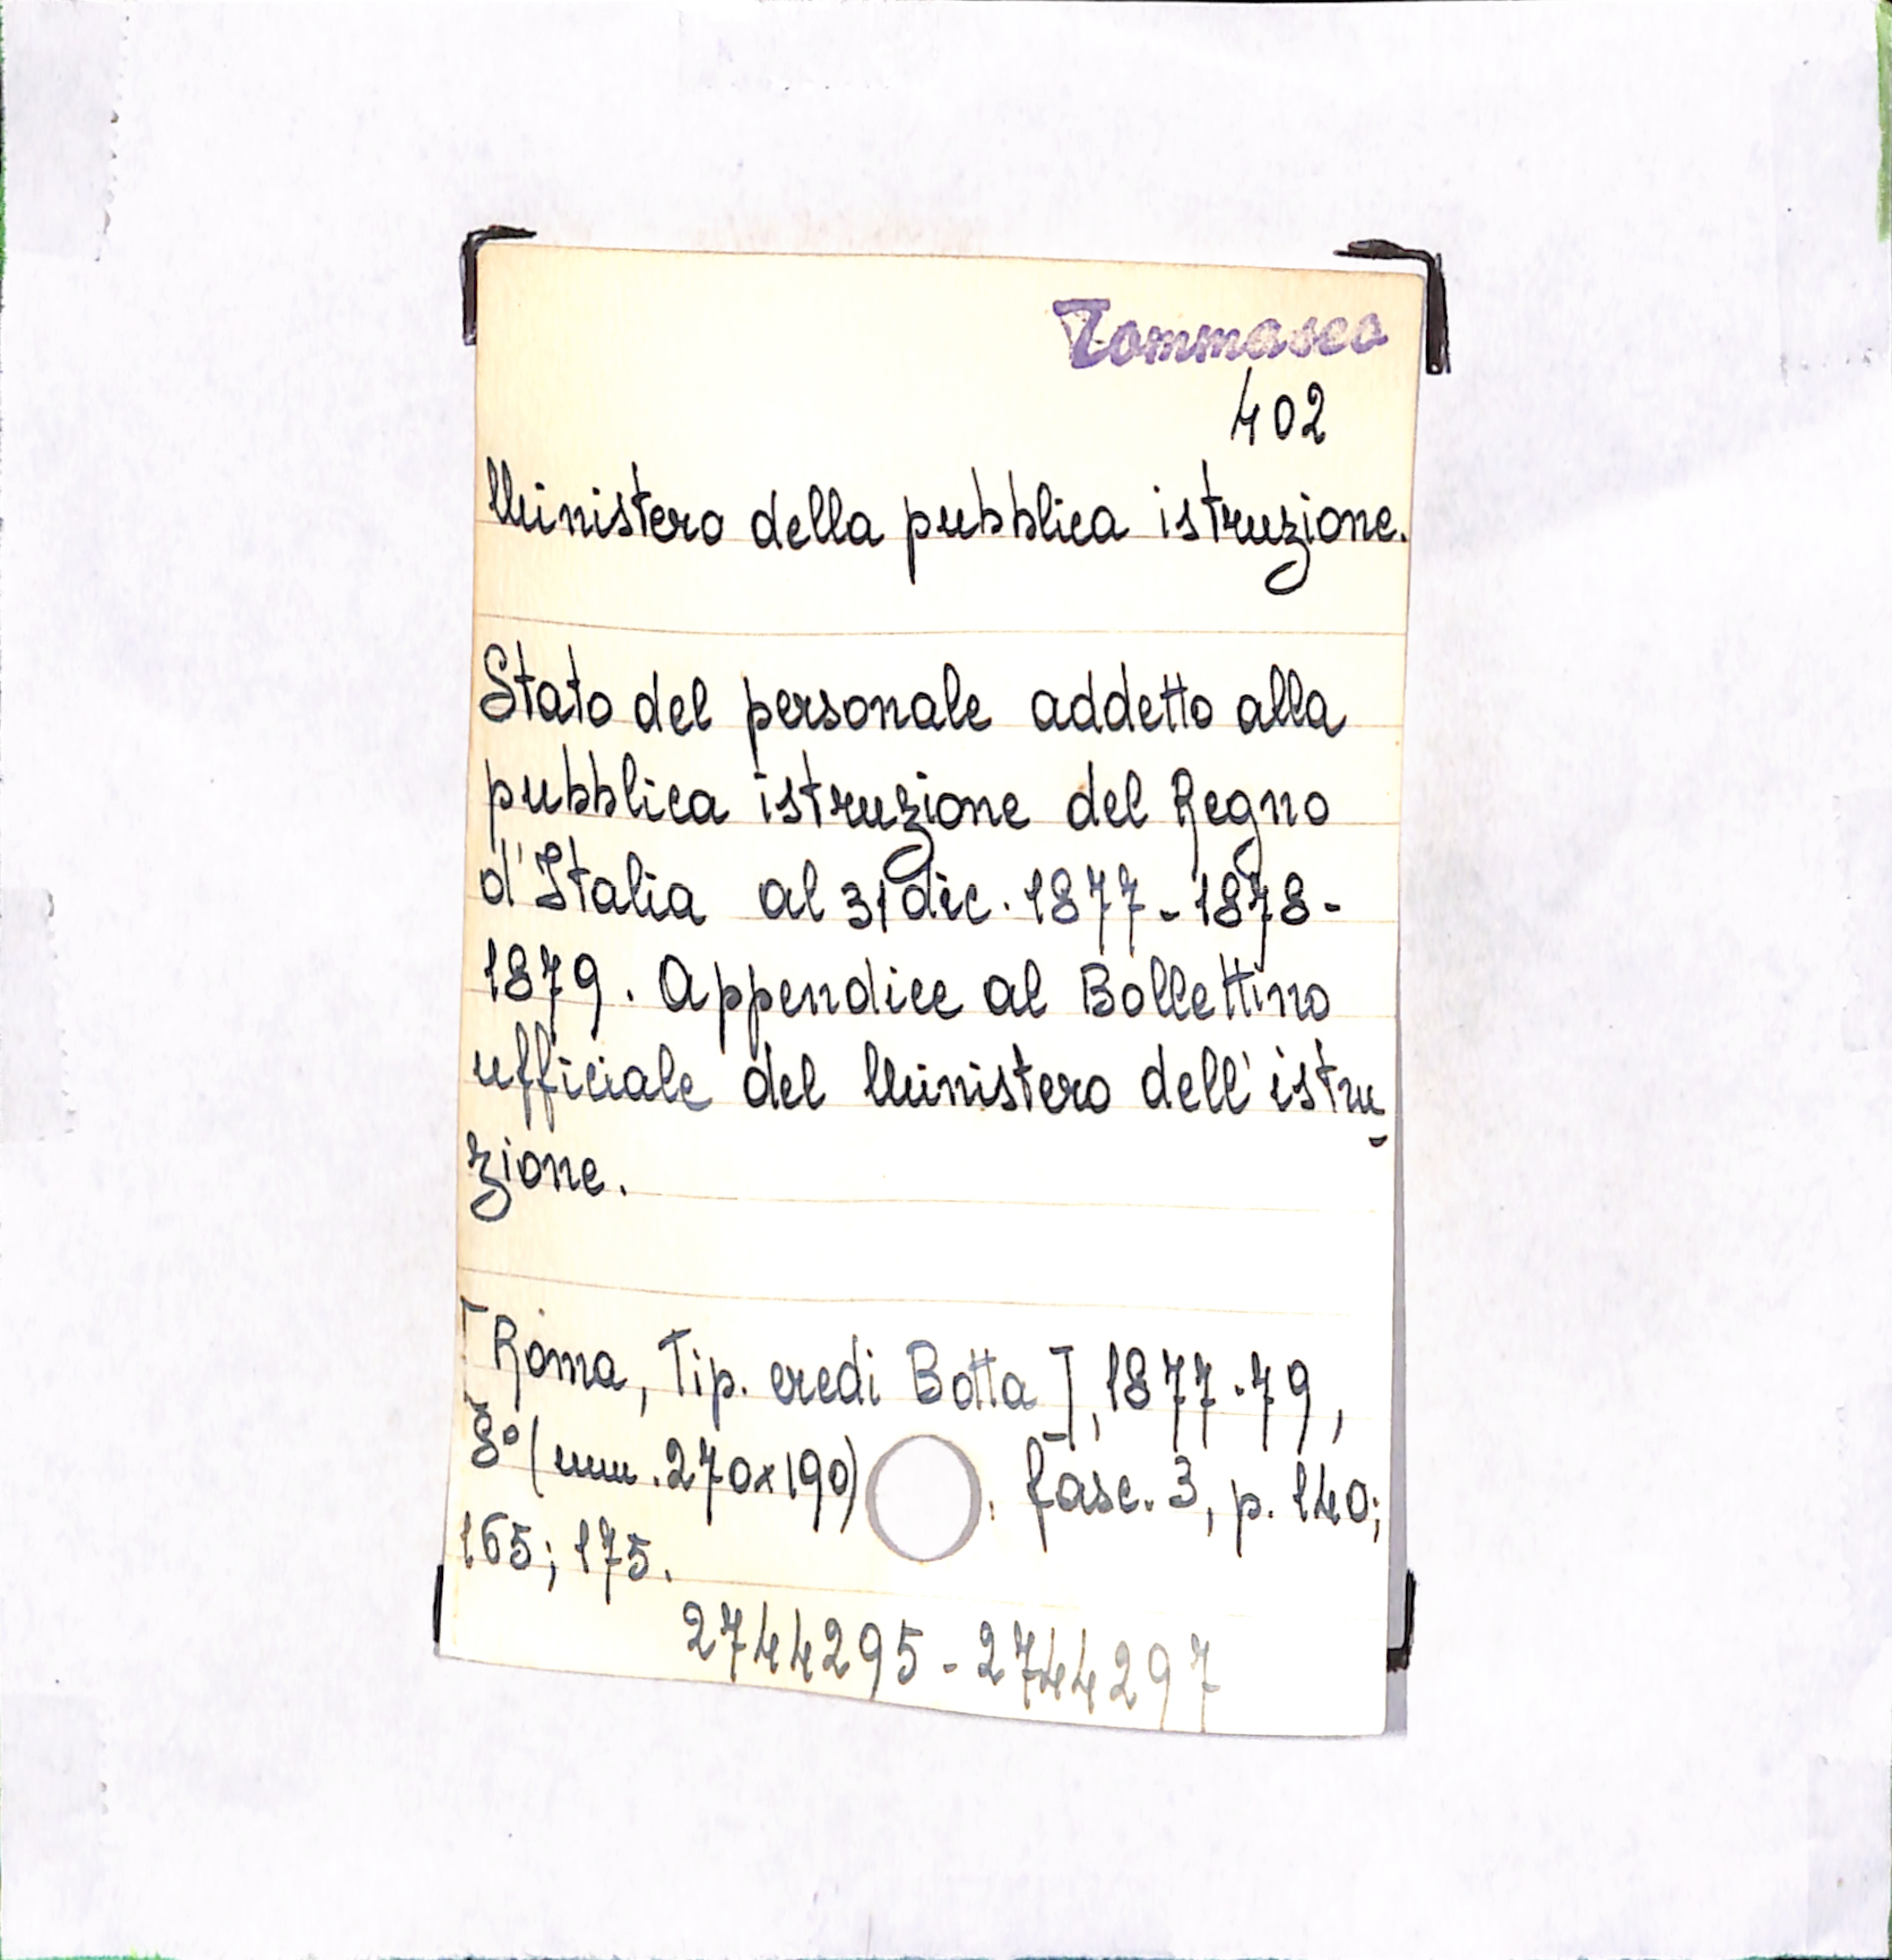 Tommaseo
402
Ministero della pubblica istruzione.
Stato del personale addetto alla
pubblica istruzione del Regno
d'Italia al 31 dic. 1877-1878-
1879. Appendice al Bollettino
ufficiale del Ministero dell'istru-
zione.
[Roma, Tip. eredi Botta], 1877-79,
8° (mm. 270x190). fasc. 3, p. 140;
165; 175.
2744295-2744297